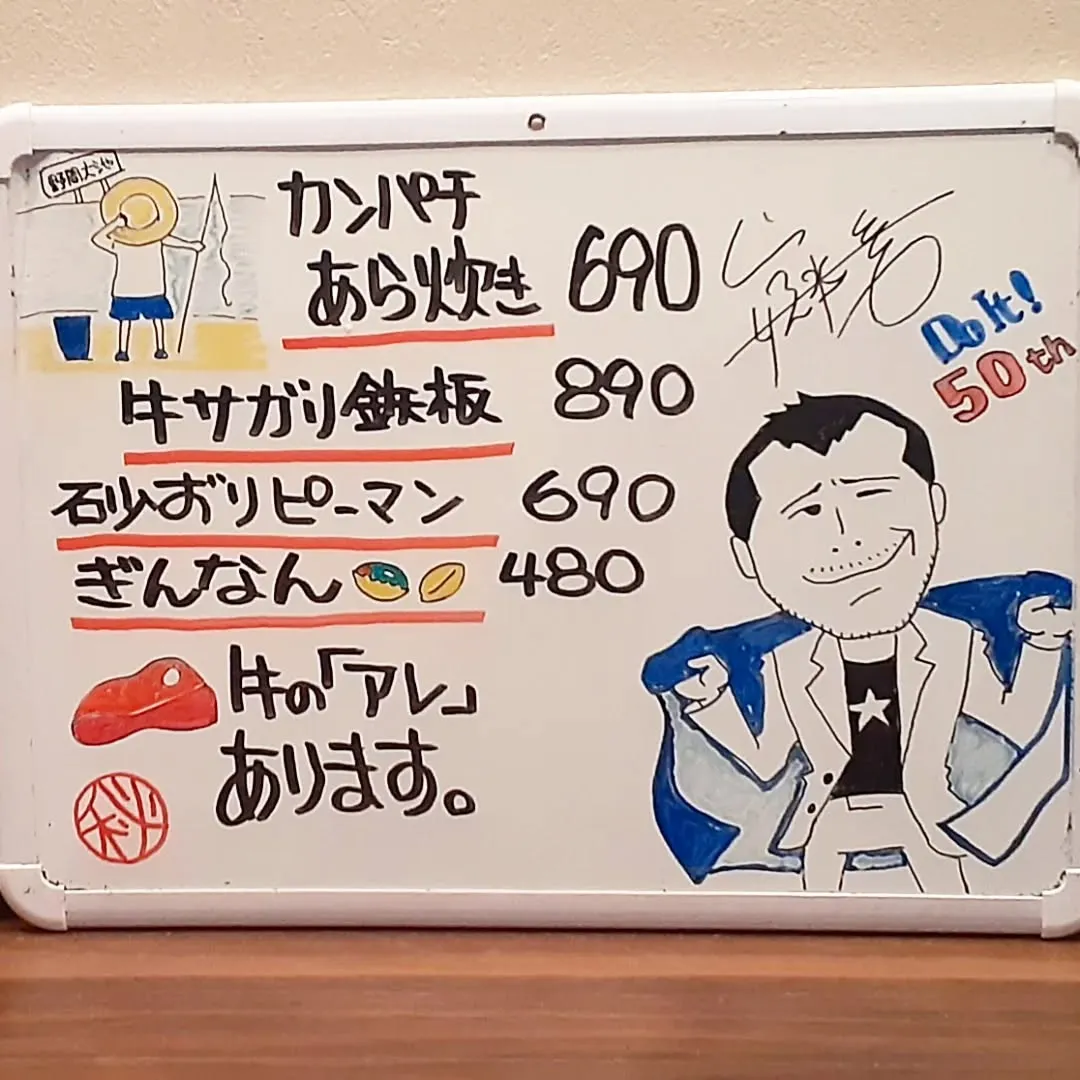 野間大池
カンパチ
あら炊き 690
牛サガリ鉄板 890
砂ずりピーマン 690
ぎんなん 480
牛の「アレ」
あります。
Do It!
50th